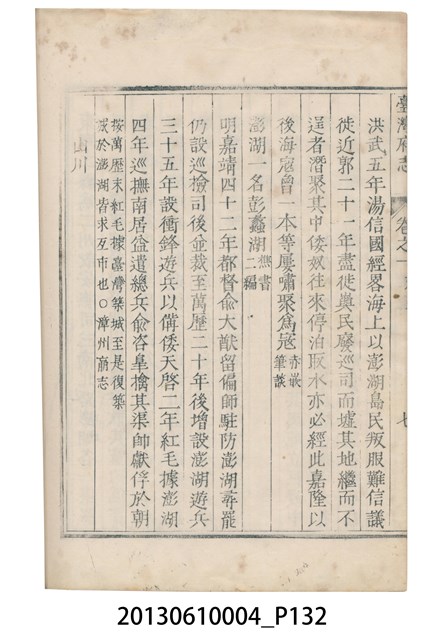 臺灣府志 卷之一 七
洪武五年湯信國經畧海上以澎湖島民叛服難信議
徙近郭二十一年盡徙輿民廢巡司而墟其地繼而不
逞者潛聚其中倭奴往來停泊取水亦必經此嘉隆以
後海寇曾一本等屢嘯聚爲寇赤嵌筆談
澎湖一名彭蠡湖燕書二編
明嘉靖四十二年都督俞大猷留偏師駐防澎湖尋罷
仍設巡檢司後並裁至萬歷二十年後增設澎湖遊兵
三十五年設衝鋒遊兵以備倭天啓二年紅毛據澎湖
四年巡撫南居益遣總兵俞咨臯擒其渠帥獻俘於朝
按萬歷末紅毛據臺灣築城至是復築
城於澎湖皆求互市也○漳州府志
山川
20130610004_P132